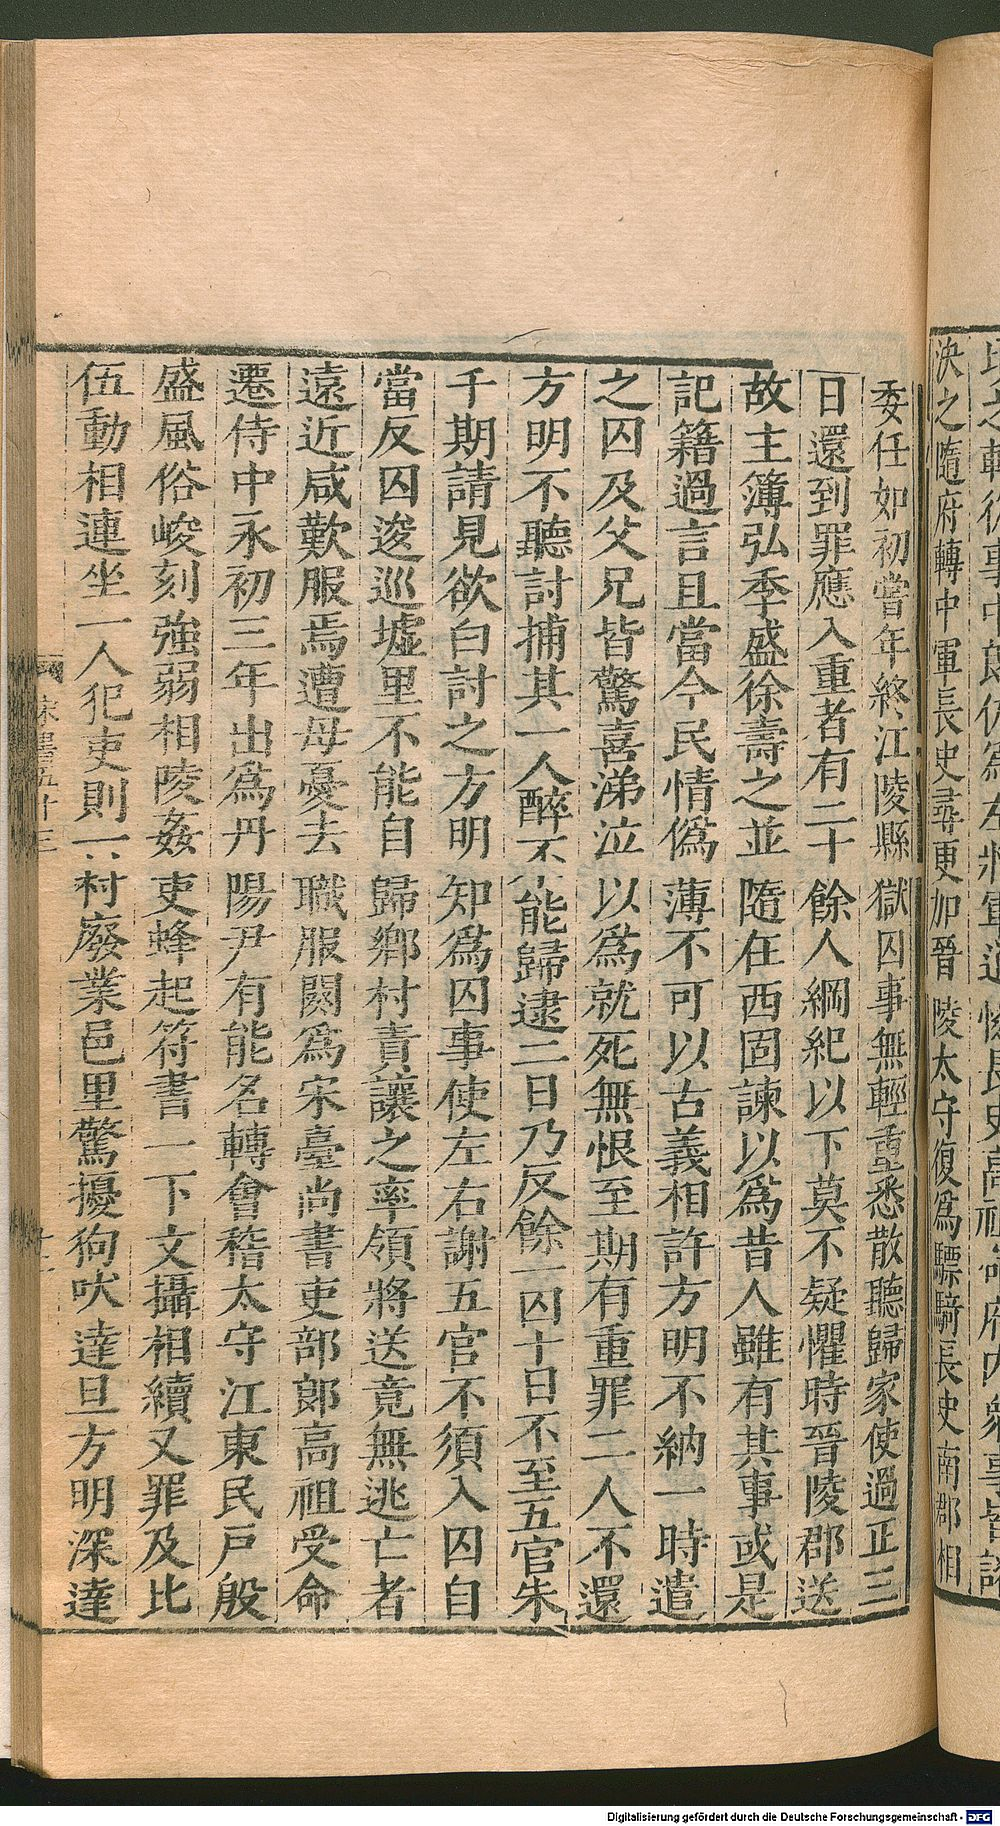 決之隨府轉中軍長史尋更加晉陵太守復爲驃騎長史南郡相
委任如初嘗年終江陵縣獄囚事無輕重悉散聽歸家使過正三
日還到罪應入重者有二十餘人綱紀以下莫不疑懼時晉陵郡送
故主簿弘季盛徐壽之並隨在西固諫以爲昔人雖有其事或是
記籍過言且當今民情僞薄不可以古義相許方明不納一時遣
之囚及父兄皆驚喜涕泣以爲就死無恨至期有重罪二人不還
方明不聽討捕其一人醉不能歸逮二日乃反餘一囚十日不至五官朱
千期請見欲白討之方明知爲囚事使左右謝五官不須入囚自
當反囚逡巡墟里不能自歸鄉村責讓之率領將送竟無逃亡者
遠近咸歎服焉遭母憂去職服闋爲宋臺尚書吏部郎高祖受命
遷侍中永初三年出爲丹陽尹有能名轉會稽太守江東民戶殷
盛風俗峻刻強弱相陵姦吏蜂起符書一下文攝相續又罪及比
伍動相連坐一人犯吏則一村廢業邑里驚擾狗吠達旦方明深達
宋書五十三
Digitalisierung gefördert durch die Deutsche Forschungsgemeinschaft - DFG